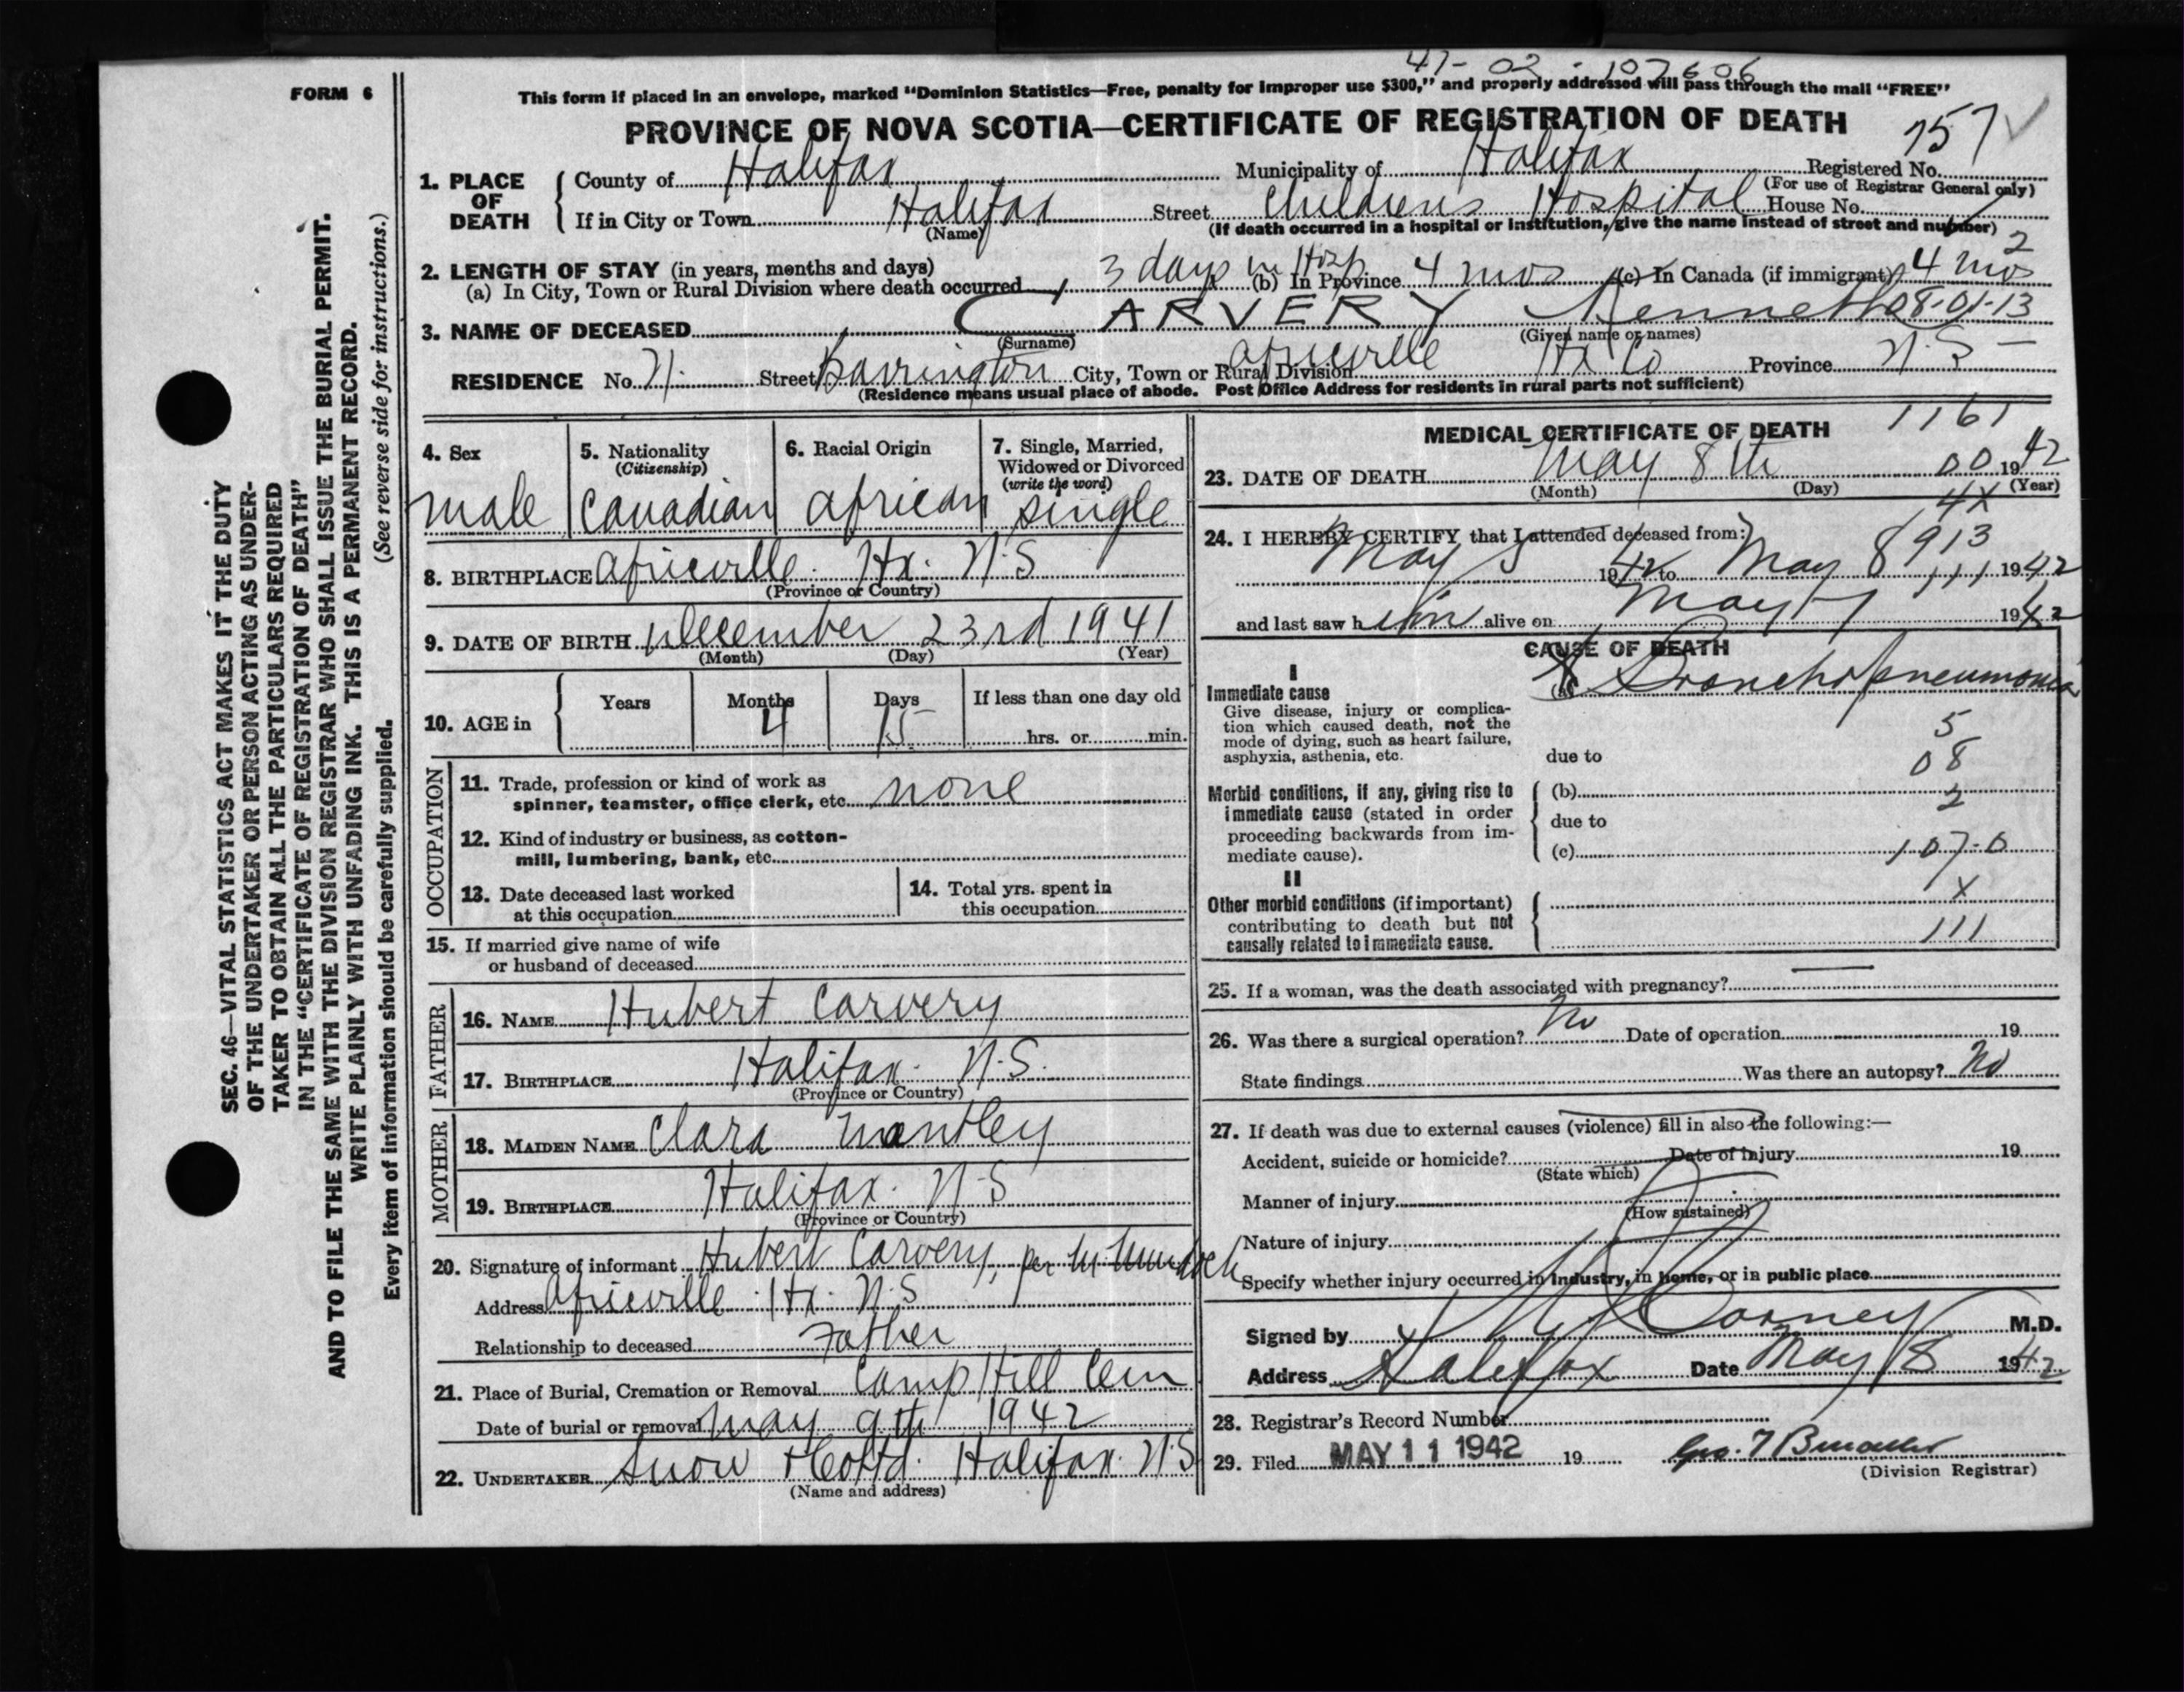 47-02-107606
FORM 6
This form if placed in an envelope, marked "Dominion Statistics—Free, penalty for improper use $300," and properly addressed will pass through the mail "FREE"
PROVINCE OF NOVA SCOTIA—CERTIFICATE OF REGISTRATION OF DEATH
757 ✓
1. PLACE OF DEATH
County of Halifax Municipality of Halifax Registered No.
(For use of Registrar General only)
If in City or Town Halifax Street Childrens Hospital House No.
(Name) (If death occurred in a hospital or institution, give the name instead of street and number)
2
2. LENGTH OF STAY (in years, months and days)
(a) In City, Town or Rural Division where death occurred 3 days in Hosp (b) In Province 4 mos (c) In Canada (if immigrant) 4 mos
08-01-13
3. NAME OF DECEASED CARVERY Kenneth
(Surname) (Given name or names)
RESIDENCE No. N. Street Barrington City, Town or Rural Division Africville Hx Co Province N.S-
(Residence means usual place of abode. Post Office Address for residents in rural parts not sufficient)
4. Sex
male
5. Nationality
(Citizenship)
Canadian
6. Racial Origin
African
7. Single, Married,
Widowed or Divorced
(write the word)
single
8. BIRTHPLACE Africville. Hx. N.S
(Province or Country)
9. DATE OF BIRTH December 23rd 1941
(Month) (Day) (Year)
10. AGE in
Years Months Days If less than one day old
4 15 hrs. or min.
OCCUPATION
11. Trade, profession or kind of work as
spinner, teamster, office clerk, etc. none
12. Kind of industry or business, as cotton-
mill, lumbering, bank, etc.
13. Date deceased last worked
at this occupation
14. Total yrs. spent in
this occupation
15. If married give name of wife
or husband of deceased
FATHER
16. NAME Hubert Carvery
17. BIRTHPLACE Halifax. N.S.
(Province or Country)
MOTHER
18. MAIDEN NAME Clara Mantley
19. BIRTHPLACE Halifax. N-S
(Province or Country)
20. Signature of informant Hubert Carvery, per
Address Africville. Hx. N.S
Relationship to deceased Father
21. Place of Burial, Cremation or Removal Camp Hill Cem
Date of burial or removal May 9th 1942
22. UNDERTAKER Snow & Co Ltd. Halifax. N.S
(Name and address)
1161
MEDICAL CERTIFICATE OF DEATH
23. DATE OF DEATH May 8th 00 1942
(Month) (Day) (Year)
4X
24. I HEREBY CERTIFY that I attended deceased from:
913
May 5 1942 to May 8 111 1942
and last saw him alive on May 7 1942
CAUSE OF DEATH
I
Immediate cause
Give disease, injury or complica-
tion which caused death, not the
mode of dying, such as heart failure,
asphyxia, asthenia, etc.
(a) Bronchopneumonia
5
due to
08
Morbid conditions, if any, giving rise to
immediate cause (stated in order
proceeding backwards from im-
mediate cause).
(b)
2
due to
(c) 107.0
II
Other morbid conditions (if important)
contributing to death but not
causally related to immediate cause.
X
111
25. If a woman, was the death associated with pregnancy?
26. Was there a surgical operation? No Date of operation 19
State findings Was there an autopsy? No
27. If death was due to external causes (violence) fill in also the following:—
Accident, suicide or homicide? Date of injury 19
(State which)
Manner of injury
(How sustained)
Nature of injury
Specify whether injury occurred in industry, in home, or in public place
Signed by Corney M.D.
Address Halifax Date May 8 1942
28. Registrar's Record Number
29. Filed MAY 11 1942 19 Geo. T
(Division Registrar)
SEC. 46—VITAL STATISTICS ACT MAKES IT THE DUTY
OF THE UNDERTAKER OR PERSON ACTING AS UNDER-
TAKER TO OBTAIN ALL THE PARTICULARS REQUIRED
IN THE "CERTIFICATE OF REGISTRATION OF DEATH"
AND TO FILE THE SAME WITH THE DIVISION REGISTRAR WHO SHALL ISSUE THE BURIAL PERMIT.
WRITE PLAINLY WITH UNFADING INK. THIS IS A PERMANENT RECORD.
Every item of information should be carefully supplied. (See reverse side for instructions.)